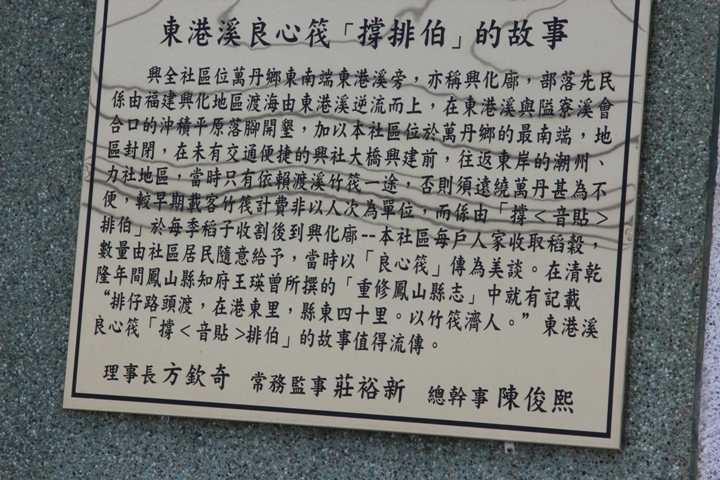 東港溪良心筏「撐排伯」的故事
興全社區位萬丹鄉東南端東港溪旁，亦稱興化廍，部落先民
係由福建興化地區渡海由東港溪逆流而上，在東港溪與隘寮溪會
合口的沖積平原落腳開墾，加以本社區位於萬丹鄉的最南端，地
區封閉，在未有交通便捷的興社大橋興建前，往返東岸的潮州、
力社地區，當時只有依賴渡溪竹筏一途，否則須遠繞萬丹甚為不
便，較早期載客竹筏計費非以人次為單位，而係由「撐＜音貼＞
排伯」於每季稻子收割後到興化廍--本社區每戶人家收取稻穀，
數量由社區居民隨意給予，當時以「良心筏」傳為美談。在清乾
隆年間鳳山縣知府王瑛曾所撰的「重修鳳山縣志」中就有記載
“排仔路頭渡，在港東里，縣東四十里。以竹筏濟人。”東港溪
良心筏「撐＜音貼＞排伯」的故事值得流傳。
理事長方欽奇 常務監事莊裕新 總幹事陳俊熙